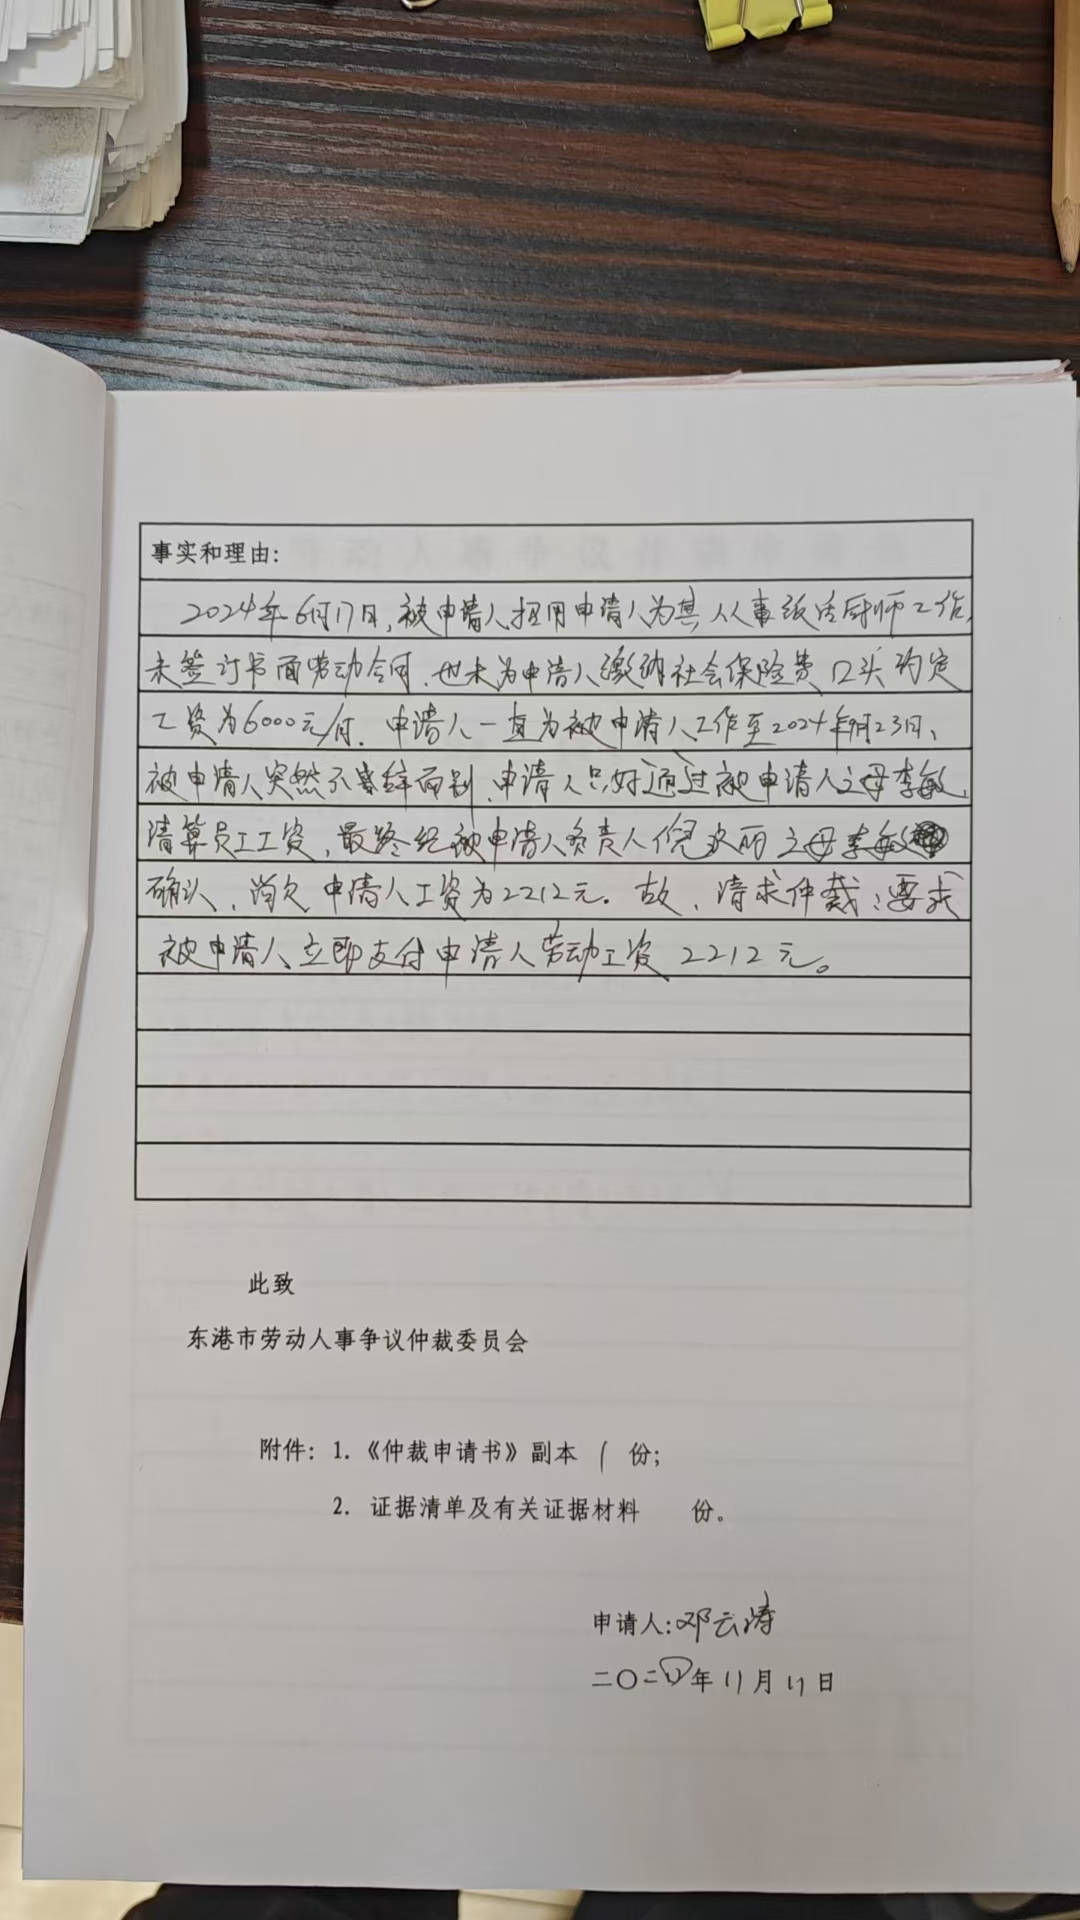 事实和理由:
2024年6月17日,被申请人招用申请人为其从事 厨师工作,
未签订书面劳动合同,也未为申请人缴纳社会保险费 口头约定
工资为6000元/月.申请人一直为被申请人工作至2024年 月23日、
被申请人突然不 辞而别,申请人只好通过被申请人之母李敏
清算员工工资,最终经被申请人负责人倪 丽之母李敏
确认、尚欠申请人工资为2212元.故,请求仲裁:要求
被申请人立即支付申请人劳动工资2212元。
此致
东港市劳动人事争议仲裁委员会
附件: 1.《仲裁申请书》副本 1 份;
2. 证据清单及有关证据材料 份。
申请人:邓云涛
二〇二 年11月 日